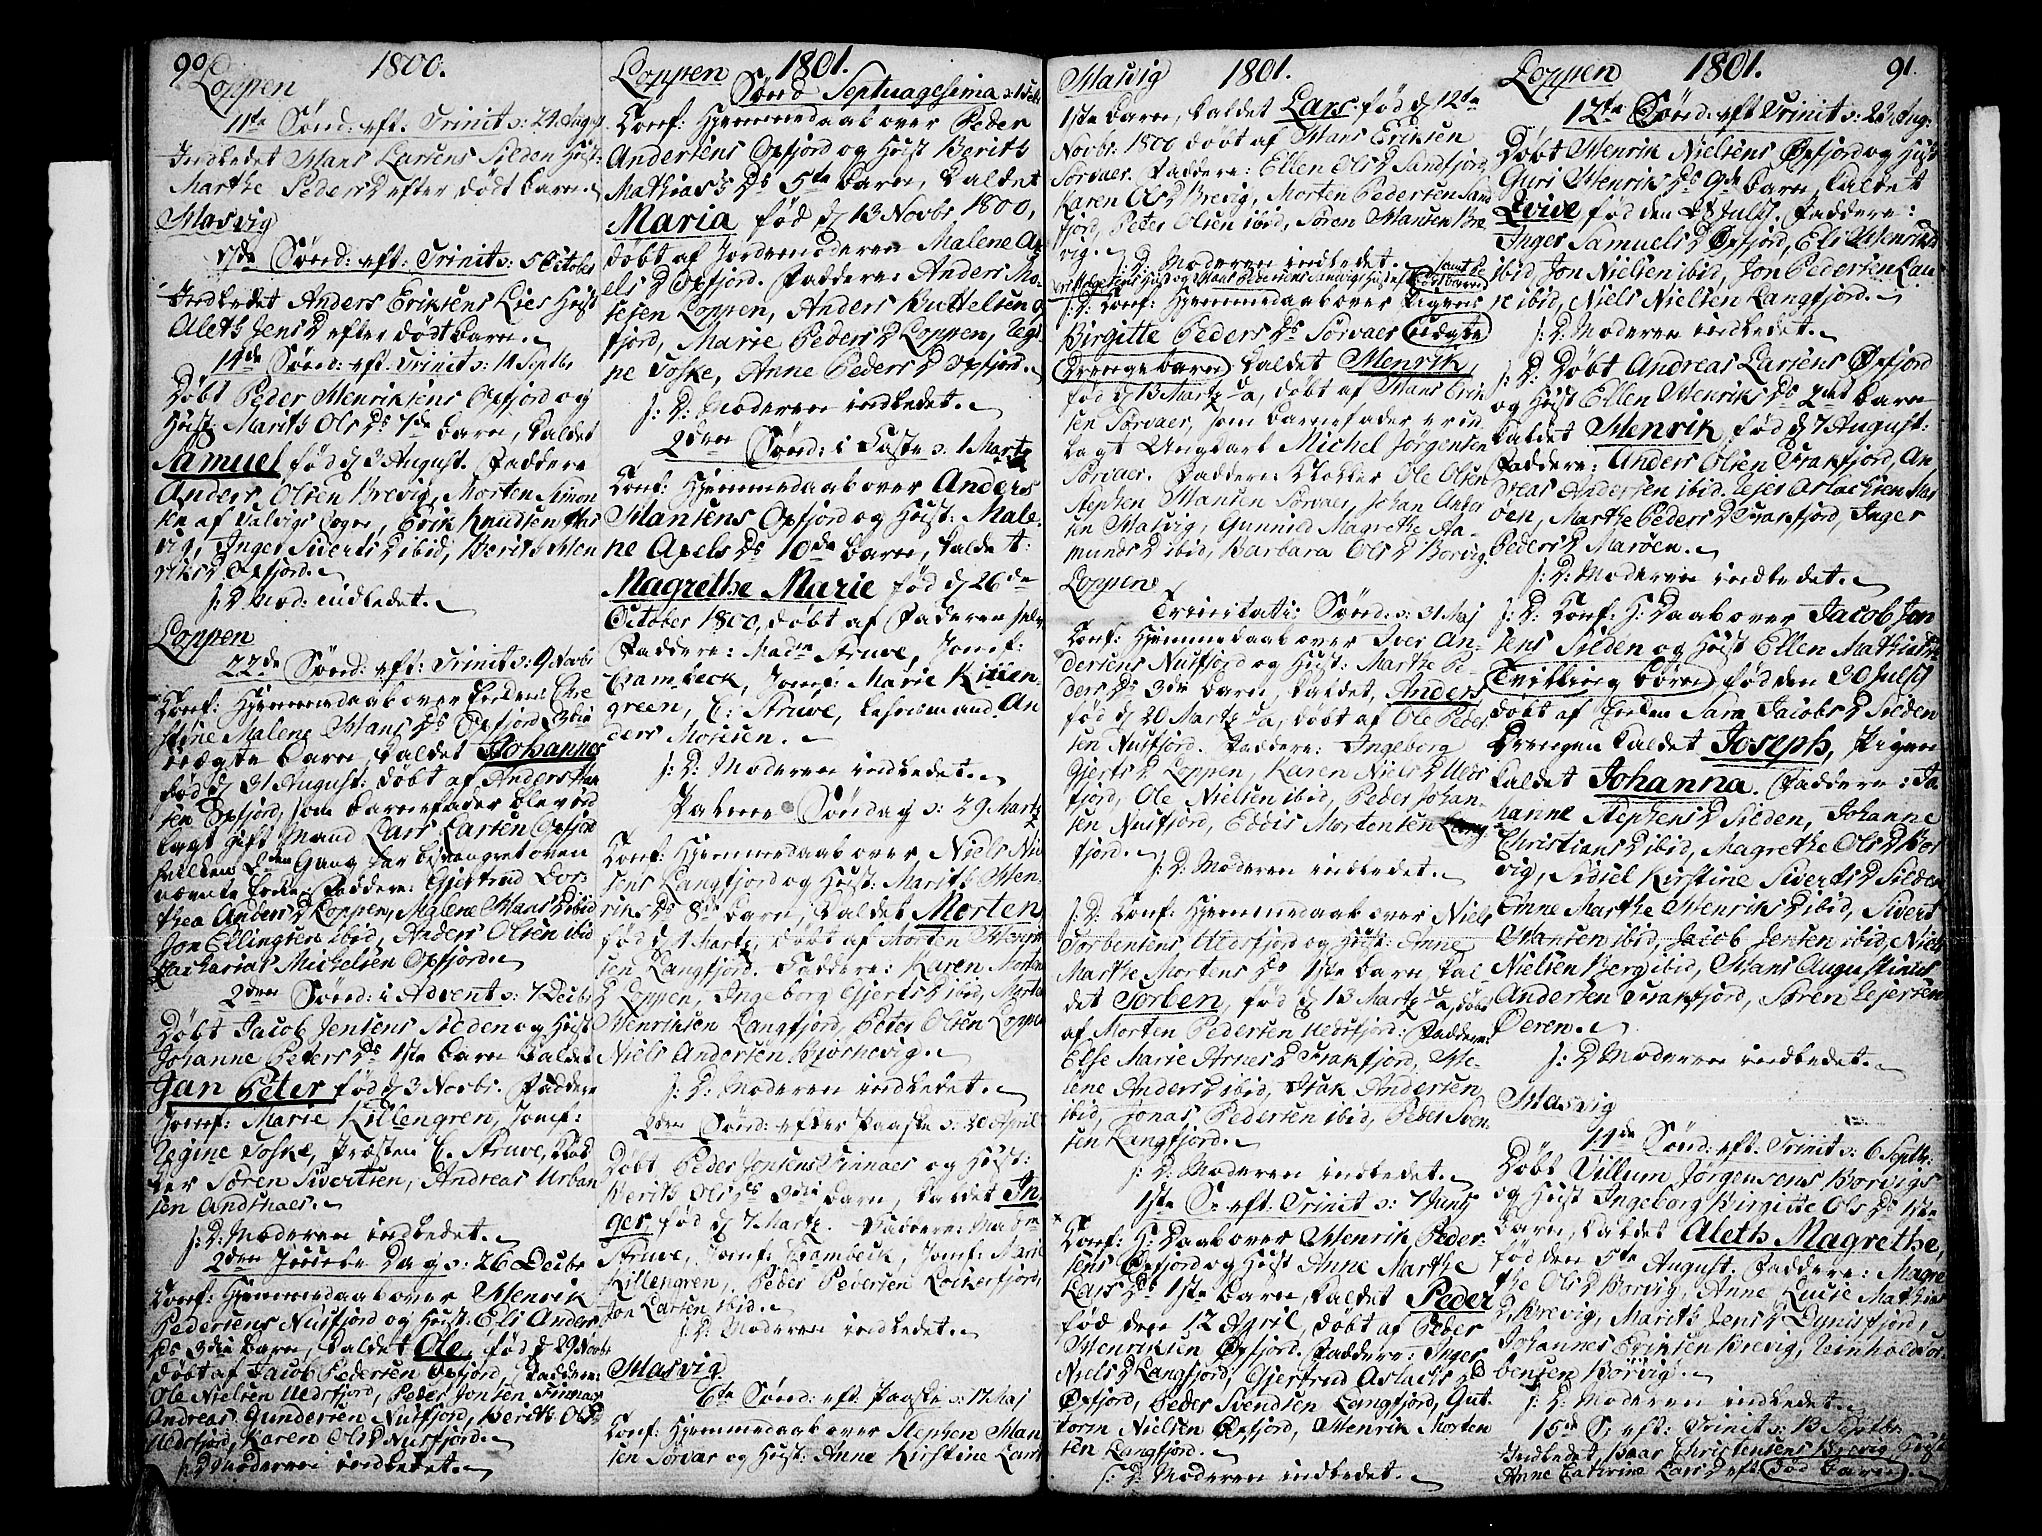 90
1800.
Loppen
11te Sønd: eft. Trinit: 24 Aug
Indledet Hans Larsens Silden Hust:
Marthe PedersD efter dødt barn.
Hasvig
Sønd: eft: Trinit: 5 October
Indledet Anders Eriksens Lies Hust
Aleth JensD efter dødt barn.
14de Sønd: eft: Trinit: 14 Septbr
Døbt Peder Henriksens Øxfjord og
Hust: Marith OlsDs 7de barn, kaldet
Samuel fød d 3 August. Faddere
Anders Olsen Brevig, Morten Simon
sen af Talvigs Sogn, Erik Knudsen Has
vig, Inger SivertsD ibid, Berith Hen
riksD Øxfjord.
s: D: Mod: indledet.
Loppen
22de Sønd: eft: Trinit: 9 Novbr
Conf: Hjemmedaab over Enken Chri
stine Malene HansDs Øxfjord 3die
uægte barn, kaldet Johannes
fød d 31 August: døbt af Anders Han
sen Øxfjord, som barnefader blev ud
lagt gift Mand Lars Larsen Øxfjord
hvilken 2den Gang har besvangret oven
nævnte Enke. Faddere: Gjertrud Dor
thea AndersD Loppen, Malene HansD ibid
Jon Ellingsen ibid, Anders Olsen ibid
Zacharias Michelsen Øxfjord.
2den Sønd: i Advent: 7 Decbr
Døbt Jacob Jensens Silden og Hust
Johanne PedersDs 1ste barn kaldet
Jan Peter fød d 3 Novbr. Faddere
Jomf: Marie Killengren, Jomf:
Regine Foske, Præsten E. Struve, Klok
ker Søren Sivertsen, Andreas Urban
sen Andsnæs.
s: D: Moderen indledet.
2den Juule Dag: 26 Decbr
Conf: Hjemmedaab over Henrik
Pedersens Nusfjord og Hust: Eli Anders
Ds 3die barn, kaldet Ole, fød d 29 Novbr
døbt af Jacob Pedersen Øxfjord, Faddere:
Ole Nielsen Uedsfjord, Peder Jonsen Finnæs
Andreas Gundersen Nusfjord, Berith OlsD
Uedsfjord, Karen OlsD Nusfjord.
s: D Moderen indledet.
Loppen 1801.
Sønd Septuagesima: 1 Feb
Conf: Hjemmedaab over Peder
Andersens Øxfjord og Hust Berith
Mathias's Ds 5te barn, kaldet
Maria fød d 13 Novbr. 1800,
døbt af Jordemoderen Malene Ax
elsD Øxfjord. Faddere: Anders
sesen Loppen, Anders Buttelsen
fjord, Marie PedersD Loppen, Regi
ne Foske, Anne PedersD Øxfjord.
s: D: Moderen indledet.
2den Sønd: i Faste: 1 Martz
Conf: Hjemmedaab over Anders
Hansens Øxfjord og Hust: Male
ne AxelsDs 10de barn, kaldet:
Magrethe Marie fød d 26de
October 1800, døbt af Faderen selv
Faddere: Madm Struve, Jomf:
Crambeck, Jomf: Marie Killen
green, E: Struve, An
ders Monsen.
s: D: Moderen indledet.
Palme Søndag: 29 Martz
Conf: Hjemmedaab over Niels Nil
sens Langfjord og Hust: Marith Hen
riksDs 8de barn, kaldet Morten
fød d 1 Martz, døbt af Morten Henrik
sen Langfjord. Faddere: Karen Morten
D Loppen, Ingeborg GjertsD ibid, Morten
Henriksen Langfjord, Peter Olsen Loppen
Niels Andersen Bjørnevig.
s: D: Moderen indledet.
2den Sønd: efter Paaske: 20 April
Døbt Peder Jensens Finnæs og Hust:
Berith OlsDs 3die barn, kaldet In
ger, fød d 7 Martz. Faddere: Madm
Struve, Jomf: Crambeck, Jomf: Marie
Killengren, Peder Pedersen Lockerfjord,
Jon Larsen ibid.
s: D: Moderen indledet.
Hasvig
6te Sønd: eft: Paaske: 17 Maj
Conf: Hjemmedaab over Stephen Han
sen Sørvær og Hust: Anne Kirstine Lars
Hasvig 1801.
1ste barn, kaldet Lars fød d 12te
Novbr. 1800 døbt af Hans Eriksen
Sørvaer. Faddere: Ellen OlsD Sandfjord,
Karen OlsD Brevig, Morten Pedersen Sand
fjord, Peter Olsen ibid, Søren Hansen Bre
vig. s: D Moderen indledet.
s: D: Conf: Hjemmedaab over Pigen
Birgitte PedersDs Sørvaer uægte
Drengebarn kaldet Henrik,
fød d 13 Martz, døbt af Hans Erik
sen Sørvaer, som barnefader er ud
lagt Ungkarl Michel Jørgensen
Sørvaer. Faddere: Klokker Ole Olsen
Stephen Hansen Sørvaer, Johan Ander
sen Hasvig, Gunnild Magrethe Aa
mundsD ibid, Barbara OlsD Borvig.
Loppen
Trinitatis Sønd: 31 Maj
Conf: Hjemmedaab over Iver An
dersens Nusfjord og Hust: Marthe Pe
dersDs 3die barn, kaldet, Anders
fød d 20 Martz, døbt af Ole Peder
sen Nusfjord. Faddere: Ingeborg
GjertsD Loppen, Karen NielsD Ueds
fjord, Ole Nielsen ibid, Peder Johan
sen Nusfjord, Eddis Mortensen Lang
fjord. s: D: Moderen indledet.
s: D: Conf: Hjemmedaab over Niels
Torbensens Uedsfjord og Hust: Anne
Marthe MortensDs 1ste barn kal
det Torben, fød d 13 Martz, døbt
af Morten Pedersen Uedsfjord: Faddere:
Else Marie ArnesD Frakfjord, He
lene AndersD ibid, Isak Andersen
ibid, Jonas Pedersen ibid, Peder Sven
sen Langfjord.
s: D: Moderen indledet.
1ste S: eft: Trinit: 7 Juny
Conf: H: Daab over Henrik Peder
sens Øxfjord og Hust Anne Marthe
LarsDs 1ste barn, kaldet Peder
fød den 12 April, døbt af Peder
Henriksen Øxfjord. Faddere: Inger
NielsD Langfjord, Gjertrud AslachsD
Øxfjord, Peder Svendsen Langfjord, Gut
torm Nielsen Øxfjord, Henrik Morten
sen Langfjord.
s: D: Moderen indledet.
Loppen 1801. 91.
12te Sønd: eft Trinit: 23 Aug:
Døbt Henrik Nielsens Øxfjord og Hust
Guri HenriksDs 9de barn kaldet
Lvive fød den July. Faddere:
Inger SamuelsD Øxfjord, Eli HenriksD
ibid, Jon Nielsen ibid, Jon Pedersen Lau
ibid, Niels Nielsen Langfjord.
s: D: Moderen indledet.
s: D: Døbt Andreas Larsens Øxfjord
og Hust Ellen HenriksDs 2det barn
kaldet Henrik fød d 7 August:
Faddere: Anders Olsen Frakfjord, An
dreas Andersen ibid. Lejer Aslachsen Mar
øen, Marthe PedersD Frakfjord, Inger
PedersD Marøen.
s: D: Moderen indledet.
s: D: Conf: H: Daab over Jacob Jon
sens Silden og Hust Ellen Mathiæ
Tvilling børn fød den 30 July
døbt af Enken Sara JacobsD Silden
Drengen kaldet Joseph, Pigen
kaldet Johanna. Faddere: Jo
hanne StephensD Silden, Johanne
ChristiansD ibid, Magrethe OlsD Bor
vig, Sidsel Kirstine SivertsD Silden
Anne Marthe HenriksD ibid, Sivert
Hansen ibid, Jacob Jensen ibid, Niels
Nielsen Berg ibid, Hans Augustinus
Andersen Frakfjord, Søren Lejersen
Øeren.
s: D Moderen indledet.
Hasvig
14de Sønd: eft: Trinit: 6 Septbr:
Døbt Villum Jørgensens Borvigs
og Hust Ingeborg Birgitte OlsDs 1ste
barn, kaldet Aleth Magrethe,
fød den 5te August. Faddere: Magre
the OlsD Borvig, Anne Luise Mathias
D Brevig, Marith JensD Dynisfjord,
Johannes Eriksen Brevig, Reinhold Tor
bensen Børvig.
s: D: Moderen indledet.
15de S: eft: Trinit: 13 Septbr
Indledet Paar Christensens Brevig Hust
Anne Cathrine LarsD eft: død barn.